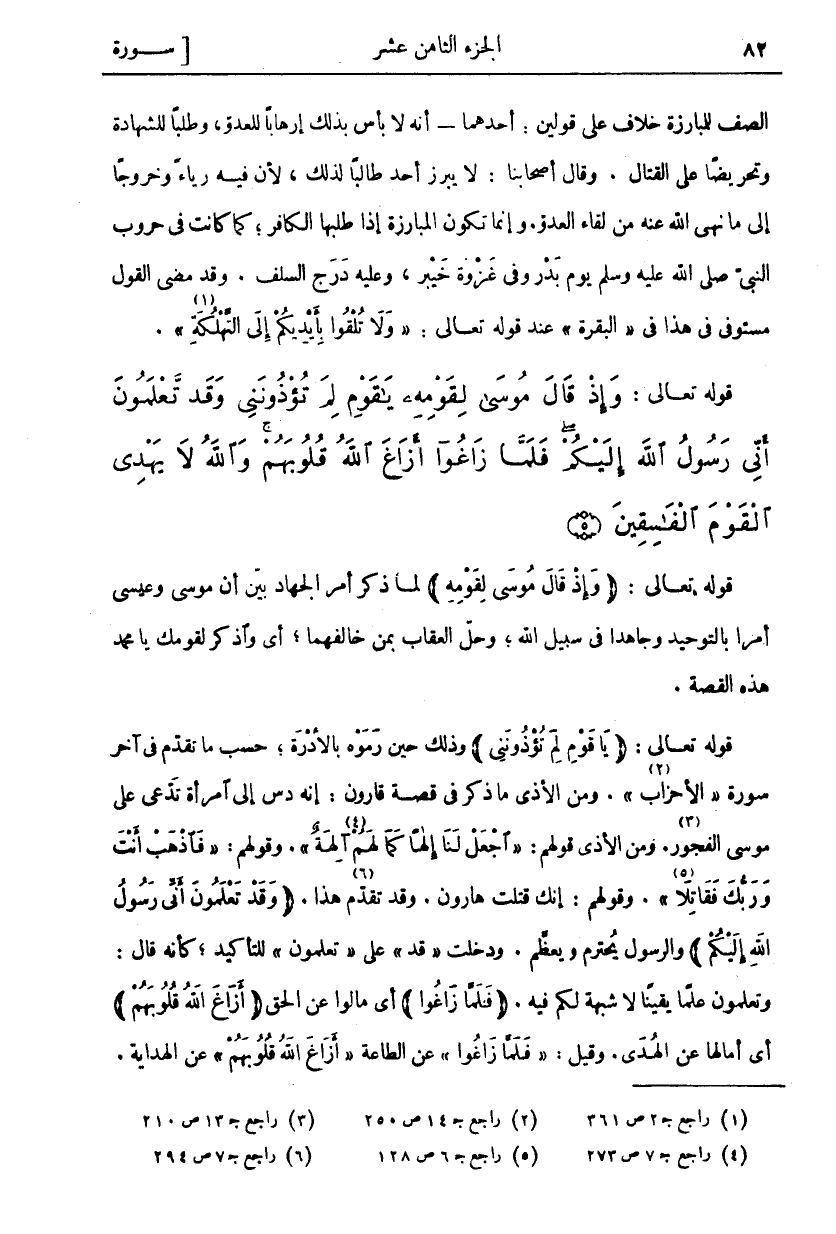 ٨٢ الجزء الثامن عشر [ ســـورة
الصف للمبارزة خلاف على قولين : أحدهما — أنه لا بأس بذلك إرهابًا للعدوّ، وطلبًا للشهادة
وتحريضًا على القتال . وقال أصحابنا : لا يبرز أحد طالبًا لذلك ، لأن فيـه رياءً وخروجًا
إلى ما نهى الله عنه من لقاء العدوّ. و إنما تكون المبارزة إذا طلبها الكافر ؛ كما كانت فى حروب
النبىّ صلى الله عليه وسلم يوم بَدْر وفى غَزْوة خَيْبر ، وعليه دَرَج السلف . وقد مضى القول
مستوفى فى هذا فى « البقرة » عند قوله تعـالى : « وَلَا تُلْقُوا بِأَيْدِيكُمْ إِلَى التَّهْلُكَةِ (١) » .
قوله تعـالى : وَإِذْ قَالَ مُوسَىٰ لِقَوْمِهِۦ يَٰقَوْمِ لِمَ تُؤْذُونَنِى وَقَد تَّعْلَمُونَ
أَنِّى رَسُولُ ٱللَّهِ إِلَيْكُمْۖ فَلَمَّـا زَاغُوٓا أَزَاغَ ٱللَّهُ قُلُوبَهُمْۚ وَٱللَّهُ لَا يَهْدِى
ٱلْقَوْمَ ٱلْفَـٰسِقِينَ ۝٥
قوله تعـالى : ﴿ وَإِذْ قَالَ مُوسَى لِقَوْمِهِ ﴾ لمـا ذكر أمر الجهاد بيّن أن موسى وعيسى
أمرا بالتوحيد وجاهدا فى سبيل الله ؛ وحلّ العقاب بمن خالفهما ؛ أى وٱذكر لقومك يا محمد
هذه القصة .
قوله تعـالى : ﴿ يَا قَوْمِ لِمَ تُؤْذُونَنِى ﴾ وذلك حين رَمَوْه بالأُدْرَة ؛ حسب ما تقدّم فى آخر
سورة « الأحزاب (٢) » . ومن الأذى ما ذكر فى قصـة قارون : إنه دس إلى ٱمرأة تَدّعى على
موسى الفجور (٣). ومن الأذى قولهم : « ٱجْعَلْ لَنَا إِلٰهًا كَمَا لَهُمْ آلِهَةٌ (٤) » . وقولهم : « فَٱذْهَبْ أَنْتَ
وَرَبُّكَ فَقَاتِلَا (٥) » . وقولهم : إنك قتلت هارون . وقد تقدّم (٦) هذا . ﴿ وَقَدْ تَعْلَمُونَ أَنِّى رَسُولُ
اللهِ إِلَيْكُمْ ﴾ والرسول يُحترم و يعظَّم . ودخلت « قد » على « تعلمون » للتأكيد ؛ كأنه قال :
وتعلمون علمًا يقينًا لا شبهة لكم فيه . ﴿ فَلَمَّا زَاغُوا ﴾ أى مالوا عن الحق ﴿ أَزَاغَ اللهُ قُلُوبَهُمْ ﴾
أى أمالها عن الهُدَى . وقيل : « فَلَمَّا زَاغُوا » عن الطاعة « أَزَاغَ اللهُ قُلُوبَهُمْ » عن الهداية .
(١) راجع جـ ٢ ص ٣٦١ (٢) راجع جـ ١٤ ص ٢٥٠ (٣) راجع جـ ١٣ ص ٢١٠
(٤) راجع جـ ٧ ص ٢٧٣ (٥) راجع جـ ٦ ص ١٢٨ (٦) راجع جـ ٧ ص ٢٩٤